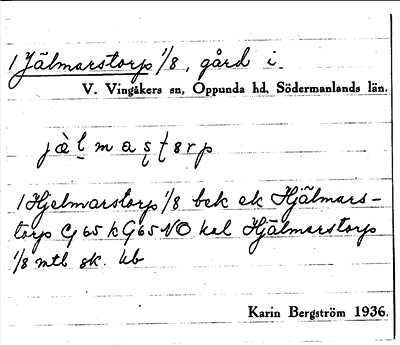 1 Jälmarstorp 1/8, gård i
V. Vingåkers sn, Oppunda hd, Södermanlands län.
jàlmaștǫrp
1 Hjelmarstorp 1/8 bek ek Hjälmars-
torp Gj 65 k Gj 65 NO kal Hjälmarstorp
1/8 mtl sk. kb
Karin Bergström 1936.